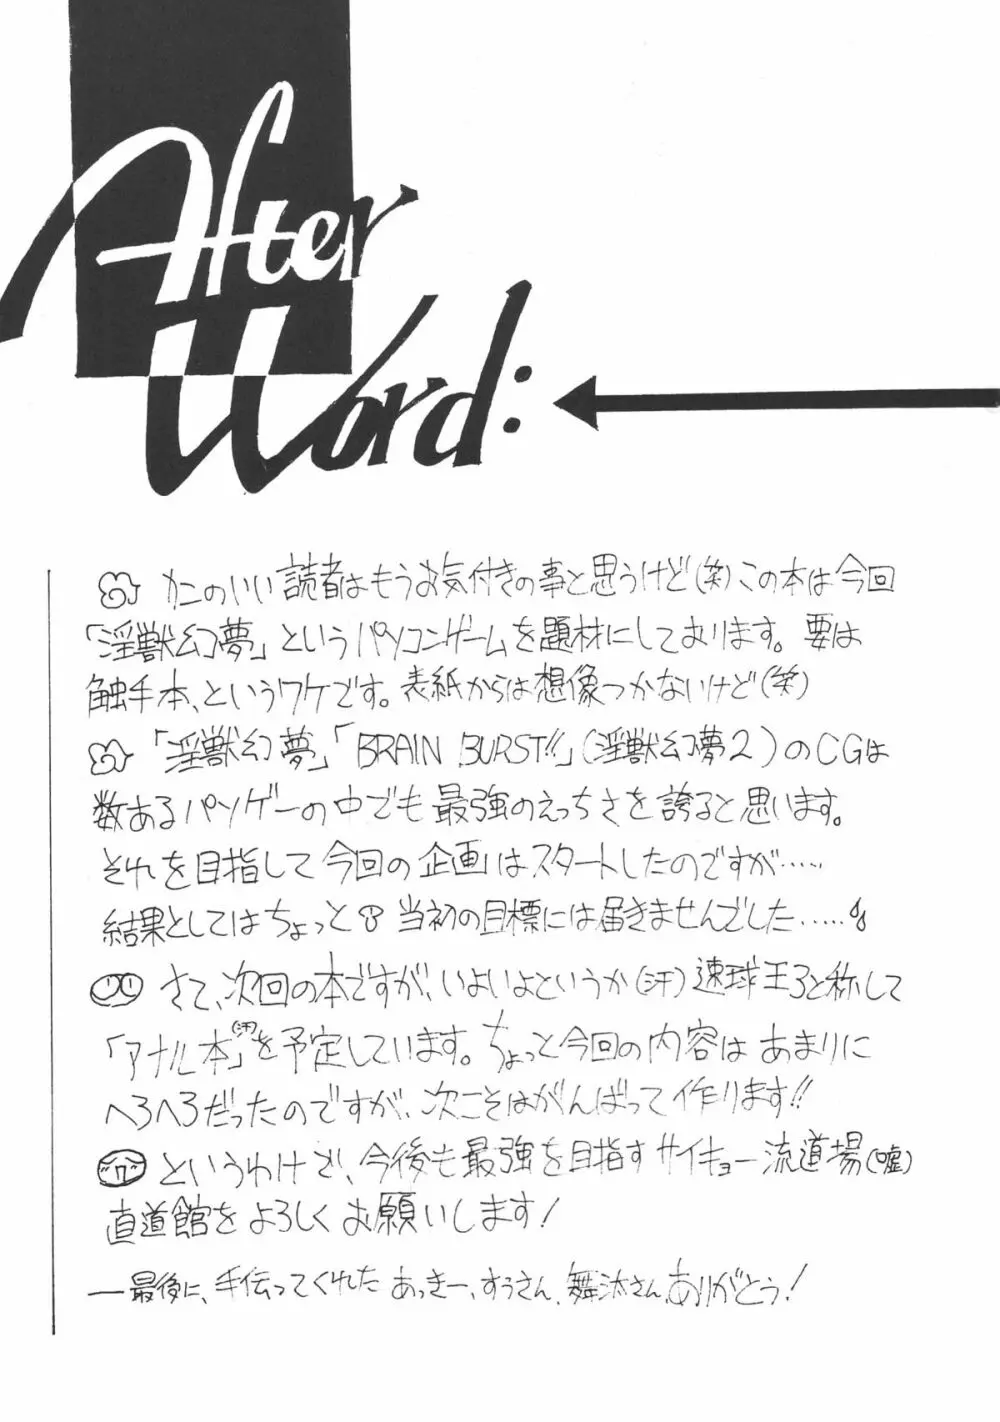 After
Word:
カンのいい読者はもうお気付きの事と思うけど(笑)この本は今回
「淫獣幻夢」というパソコンゲームを題材にしております。要は
触手本、というワケです。表紙からは想像つかないけど(笑)
「淫獣幻夢」「BRAIN BURST!!」(淫獣幻夢2)のCGは
数あるパソゲーの中でも最強のえっちさを誇ると思います。
それを目指して今回の企画はスタートしたのですが……
結果としてはちょっと当初の目標には届きませんでした……
さて、次回の本ですが、いよいよというか(汗)速球王子と称して
「アナル本」(汗)を予定しています。ちょっと今回の内容はあまりに
へろへろだったのですが、次こそはがんばって作ります!!
というわけで、今後も最強を目指すサイキョー流道場(嘘)
直道館をよろしくお願いします!
―最後に、手伝ってくれたあっきー、すうさん、舞汰さん、ありがとう!